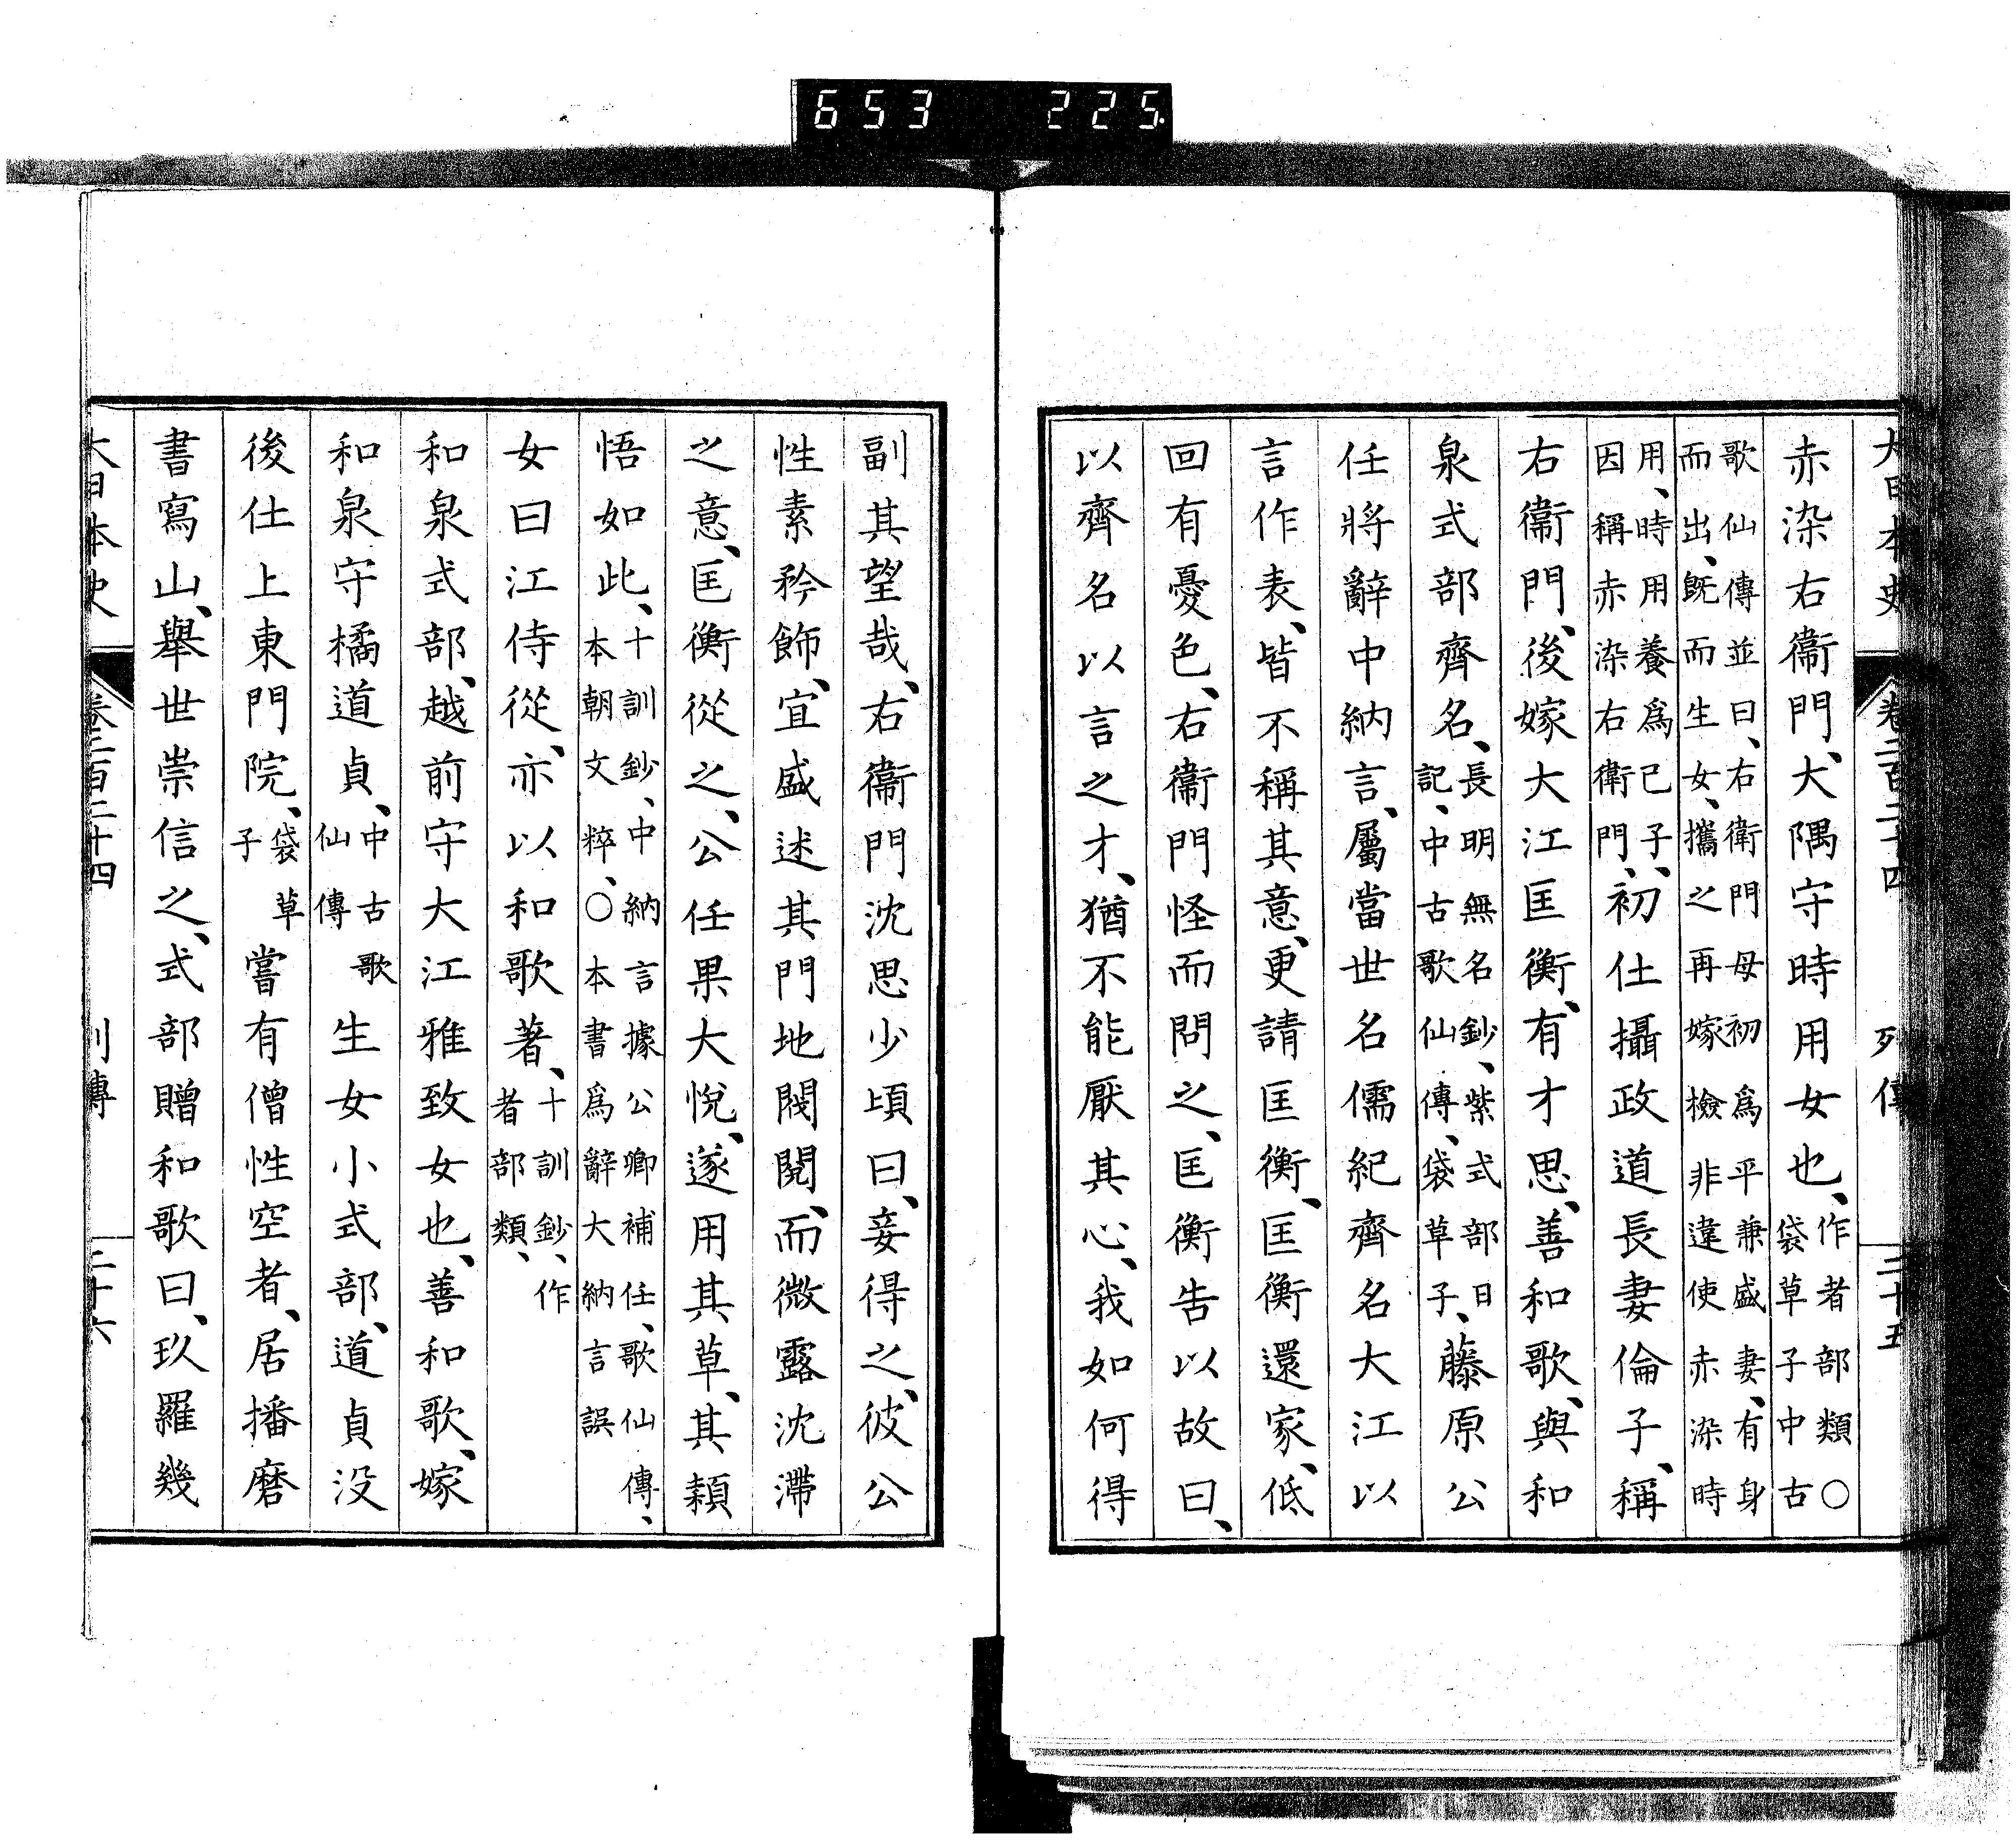 653 225.
大日本史 卷二百二十四 列傳 二十五
赤染右衞門、大隅守時用女也、作者部類○袋草子中古
歌仙傳並曰、右衞門母初爲平兼盛妻、有身而出、旣而生女、攜之再嫁檢非違使赤染時
用、時用養爲己子、因稱赤染右衞門、初仕攝政道長妻倫子、稱
右衞門、後嫁大江匡衡、有才思、善和歌、與和
泉式部齊名、長明無名鈔、紫式部日記、中古歌仙傳、袋草子、藤原公
任將辭中納言、屬當世名儒紀齊名大江以
言作表、皆不稱其意、更請匡衡、匡衡還家、低
回有憂色、右衞門怪而問之、匡衡告以故曰、
以齊名以言之才、猶不能厭其心、我如何得
副其望哉、右衞門沈思少頃曰、妾得之、彼公
性素矜飾、宜盛述其門地閥閱、而微露沈滯
之意、匡衡從之、公任果大悅、遂用其草、其穎
悟如此、十訓鈔、中納言據公卿補任、歌仙傳、本朝文粹、○本書爲辭大納言誤
女曰江侍從、亦以和歌著、十訓鈔、作者部類、
和泉式部、越前守大江雅致女也、善和歌、嫁
和泉守橘道貞、中古歌仙傳生女小式部、道貞没
後仕上東門院、袋草子嘗有僧性空者、居播磨
書寫山、舉世崇信之、式部贈和歌曰、玖羅幾
大日本史 卷二百二十四 列傳 二十六